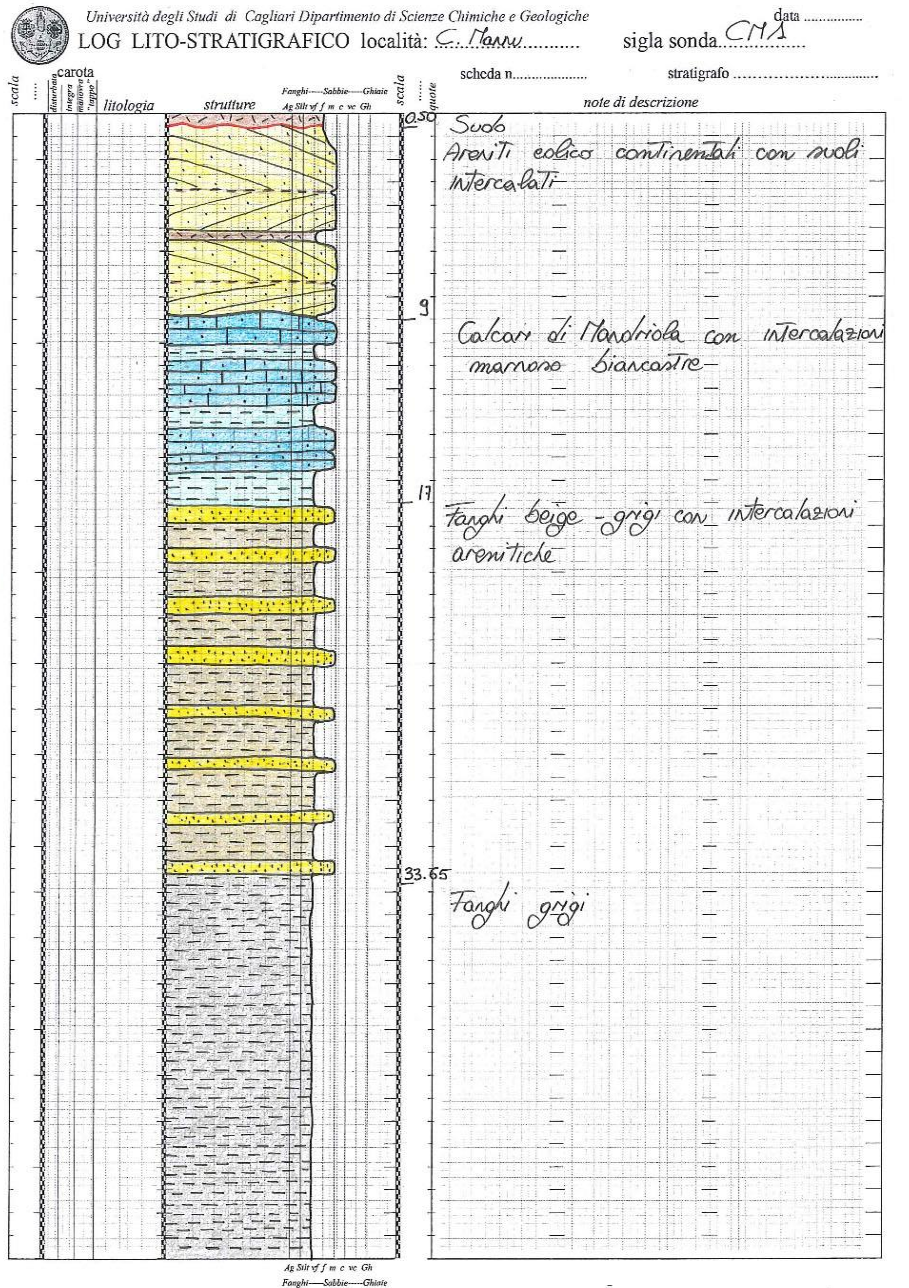 Università degli Studi di Cagliari Dipartimento di Scienze Chimiche e Geologiche
data ................
LOG LITO-STRATIGRAFICO località: C. Mannu...........
sigla sonda CM1
scheda n......................
stratigrafo ........................................
scala
.....
carota
disturbata
integra
manovra
"tappo"
litologia
strutture
Fanghi-----Sabbie-----Ghiaie
Ag Silt vf f m c vc Gh
scala
.....
quote
note di descrizione
0.50
Suolo
Areniti eolico continentali con suoli
intercalati
9
Calcari di Mandriola con intercalazioni
marnoso biancastre
17
Fanghi beige - grigi con intercalazioni
arenitiche
33.65
Fanghi grigi
Ag Silt vf f m c vc Gh
Fanghi-----Sabbie-----Ghiaie